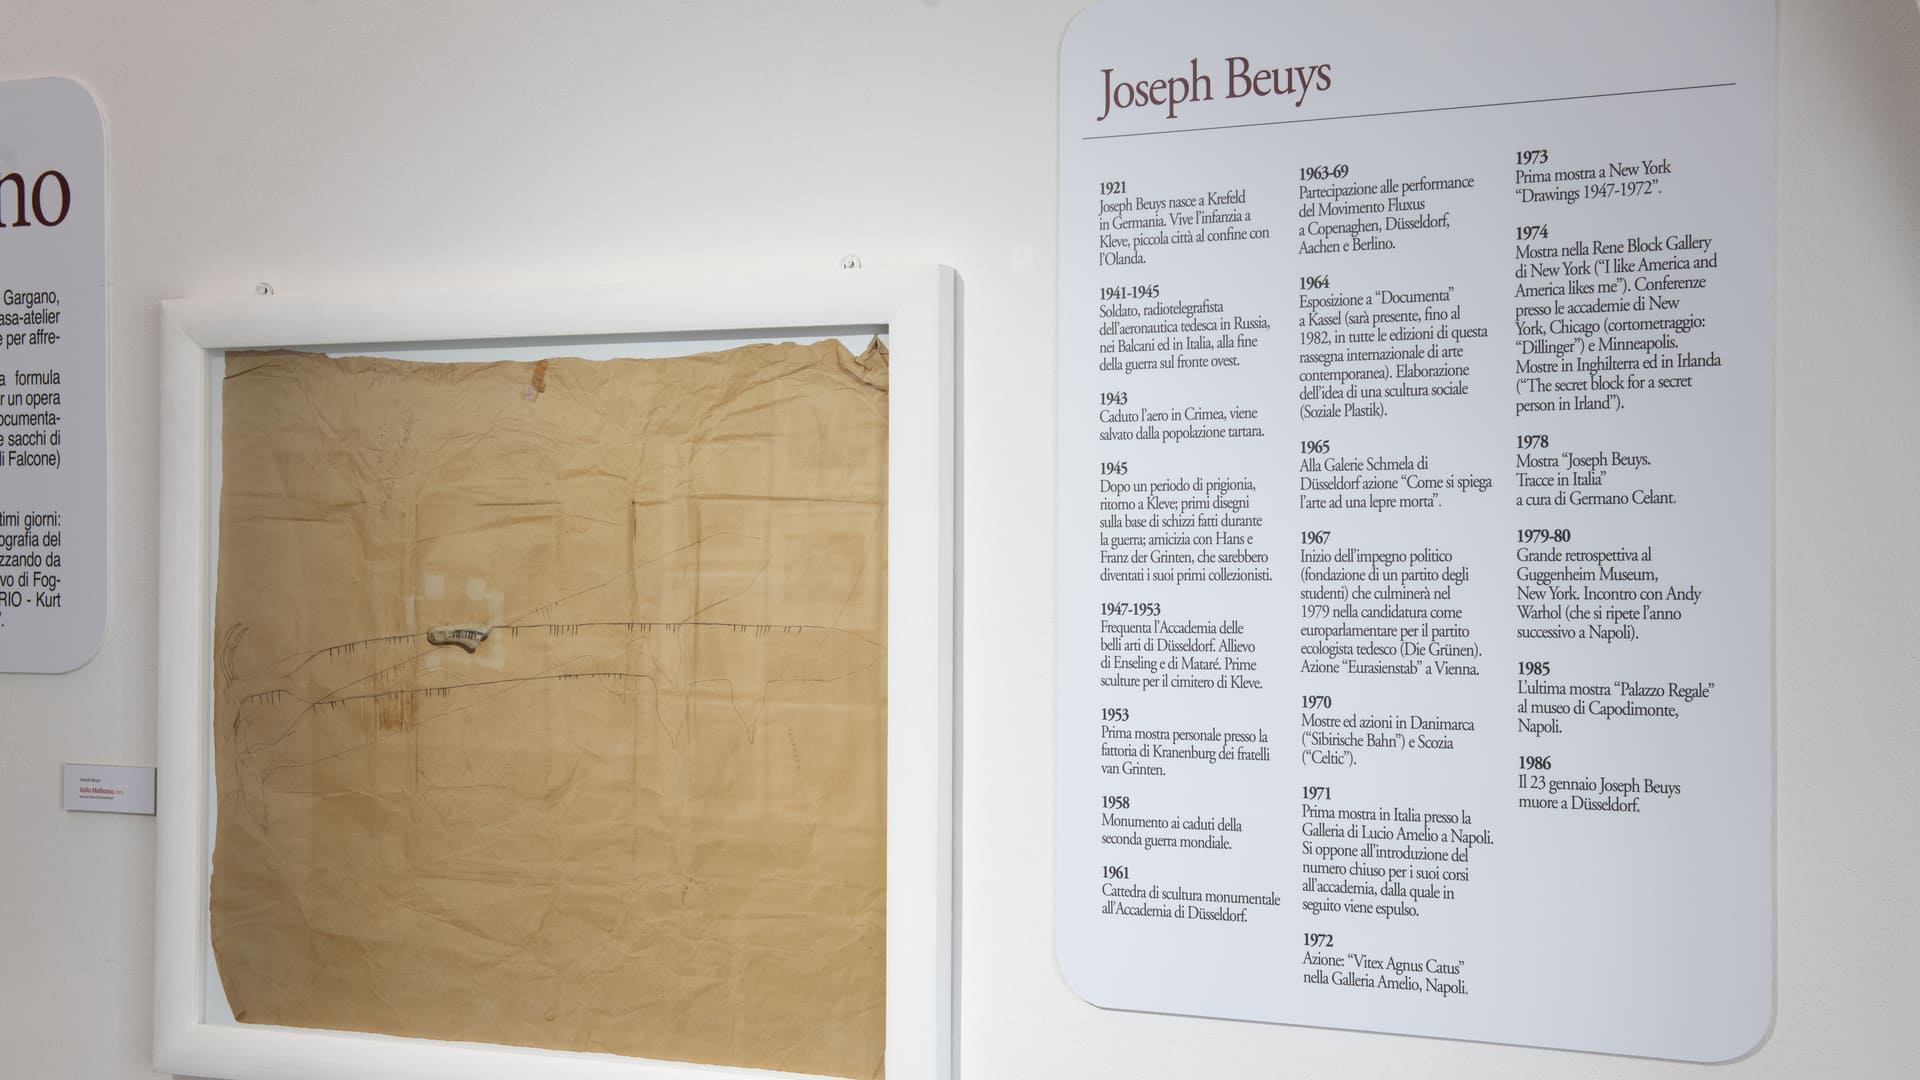 no
Gargano,
asa-atelier
e per affre-
a formula
r un opera
ocumenta-
e sacchi di
li Falcone)
timi giorni:
ografia del
zzando da
vo di Fog-
RIO - Kurt
".
Joseph Beuys
Joseph Beuys
1921
Joseph Beuys nasce a Krefeld
in Germania. Vive l'infanzia a
Kleve, piccola città al confine con
l'Olanda.
1941-1945
Soldato, radiotelegrafista
dell'aeronautica tedesca in Russia,
nei Balcani ed in Italia, alla fine
della guerra sul fronte ovest.
1943
Caduto l'aereo in Crimea, viene
salvato dalla popolazione tartara.
1945
Dopo un periodo di prigionia,
ritorno a Kleve; primi disegni
sulla base di schizzi fatti durante
la guerra; amicizia con Hans e
Franz der Grinten, che sarebbero
diventati i suoi primi collezionisti.
1947-1953
Frequenta l'Accademia delle
belli arti di Düsseldorf. Allievo
di Enseling e di Mataré. Prime
sculture per il cimitero di Kleve.
1953
Prima mostra personale presso la
fattoria di Kranenburg dei fratelli
van Grinten.
1958
Monumento ai caduti della
seconda guerra mondiale.
1961
Cattedra di scultura monumentale
all'Accademia di Düsseldorf.
1963-69
Partecipazione alle performance
del Movimento Fluxus
a Copenaghen, Düsseldorf,
Aachen e Berlino.
1964
Esposizione a "Documenta"
a Kassel (sarà presente, fino al
1982, in tutte le edizioni di questa
rassegna internazionale di arte
contemporanea). Elaborazione
dell'idea di una scultura sociale
(Soziale Plastik).
1965
Alla Galerie Schmela di
Düsseldorf azione "Come si spiega
l'arte ad una lepre morta".
1967
Inizio dell'impegno politico
(fondazione di un partito degli
studenti) che culminerà nel
1979 nella candidatura come
europarlamentare per il partito
ecologista tedesco (Die Grünen).
Azione "Eurasienstab" a Vienna.
1970
Mostre ed azioni in Danimarca
("Sibirische Bahn") e Scozia
("Celtic").
1971
Prima mostra in Italia presso la
Galleria di Lucio Amelio a Napoli.
Si oppone all'introduzione del
numero chiuso per i suoi corsi
all'accademia, dalla quale in
seguito viene espulso.
1972
Azione: "Vitex Agnus Catus"
nella Galleria Amelio, Napoli.
1973
Prima mostra a New York
"Drawings 1947-1972".
1974
Mostra nella Rene Block Gallery
di New York ("I like America and
America likes me"). Conferenze
presso le accademie di New
York, Chicago (cortometraggio:
"Dillinger") e Minneapolis.
Mostre in Inghilterra ed in Irlanda
("The secret block for a secret
person in Irland").
1978
Mostra "Joseph Beuys.
Tracce in Italia"
a cura di Germano Celant.
1979-80
Grande retrospettiva al
Guggenheim Museum,
New York. Incontro con Andy
Warhol (che si ripete l'anno
successivo a Napoli).
1985
L'ultima mostra "Palazzo Regale"
al museo di Capodimonte,
Napoli.
1986
Il 23 gennaio Joseph Beuys
muore a Düsseldorf.